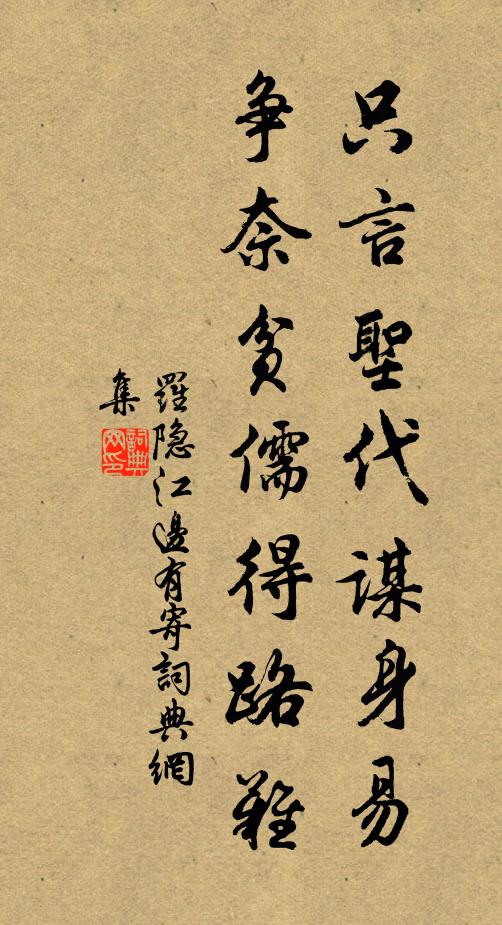 只言聖代謀身易
争奈貧儒得路難
羅隐江邊有寄詞典網
集
詞典
网印